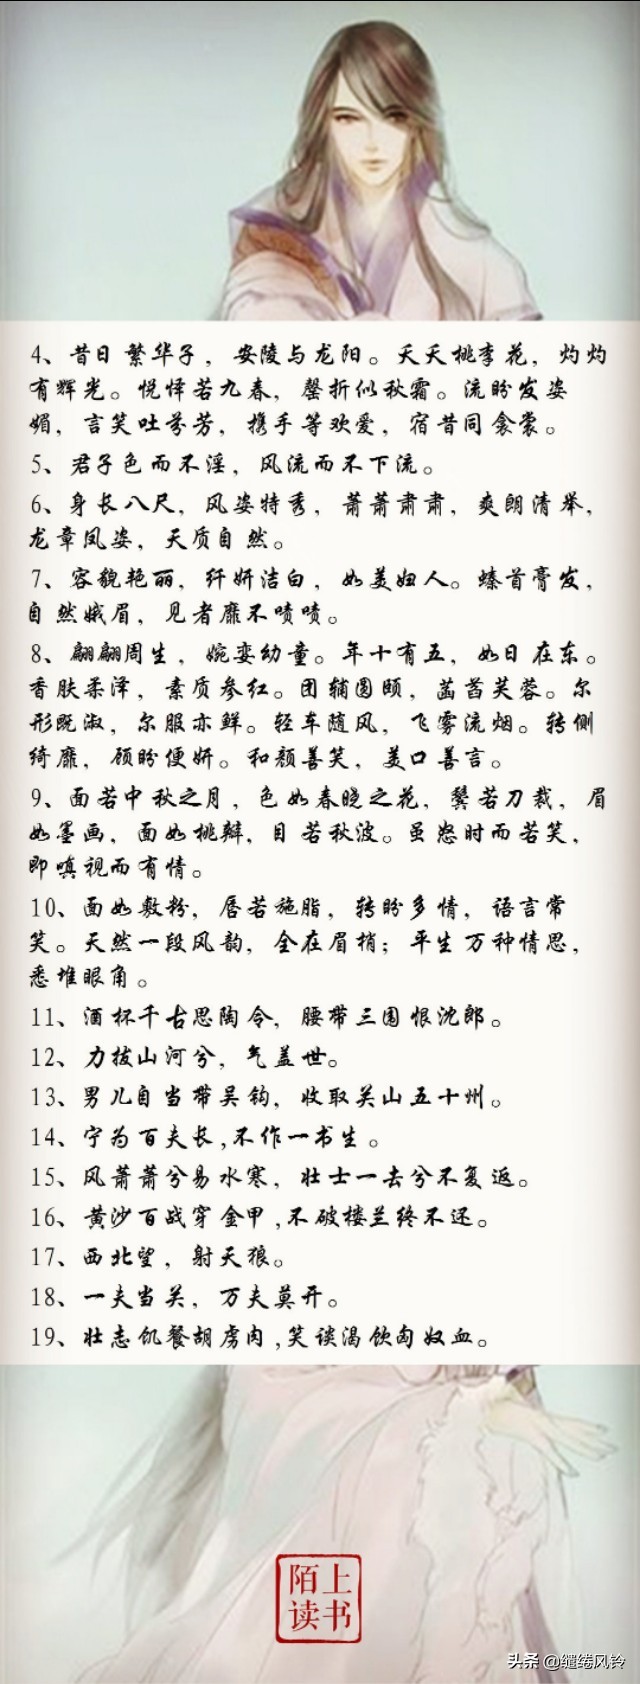 4、昔日繁华子，安陵与龙阳。夭夭桃李花，灼灼
有辉光。悦怿若九春，磬折似秋霜。流盼发姿
媚，言笑吐芬芳，携手等欢爱，宿昔同衾裳。
5、君子色而不淫，风流而不下流。
6、身长八尺，风姿特秀，萧萧肃肃，爽朗清举，
龙章凤姿，天质自然。
7、容貌艳丽，纤妍洁白，如美妇人。螓首膏发，
自然娥眉，见者靡不啧啧。
8、翩翩周生，婉娈幼童。年十有五，如日在东。
香肤柔泽，素质参红。团辅圆颐，菡萏芙蓉。尔
形既淑，尔服亦鲜。轻车随风，飞雾流烟。转侧
绮靡，顾盼便妍。和颜善笑，美口善言。
9、面若中秋之月，色如春晓之花，鬓若刀裁，眉
如墨画，面如桃瓣，目若秋波。虽怒时而若笑，
即嗔视而有情。
10、面如敷粉，唇若施脂，转盼多情，语言常
笑。天然一段风韵，全在眉梢；平生万种情思，
悉堆眼角。
11、酒杯千古思陶令，腰带三围恨沈郎。
12、力拔山河兮，气盖世。
13、男儿自当带吴钩，收取关山五十州。
14、宁为百夫长,不作一书生。
15、风萧萧兮易水寒，壮士一去兮不复返。
16、黄沙百战穿金甲,不破楼兰终不还。
17、西北望，射天狼。
18、一夫当关，万夫莫开。
19、壮志饥餐胡虏肉,笑谈渴饮匈奴血。
陌上
读书
头条 @缱绻风铃